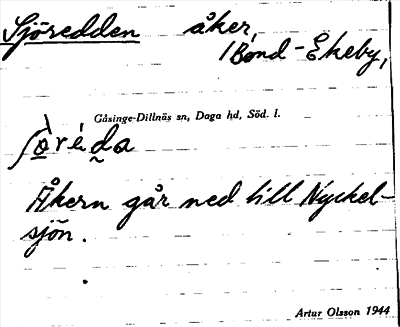 Sjöredden åker,
/Bond-Ekeby,
Gåsinge-Dillnäs sn, Daga hd, Söd. l.
Åkern går ned till Nyckel-
sjön.
Artur Olsson 1944